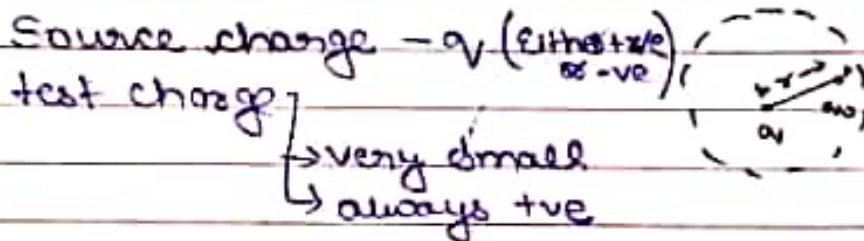 Source charge - q (Either +ve
or -ve)
test charge
→ very small
→ always +ve
r
q